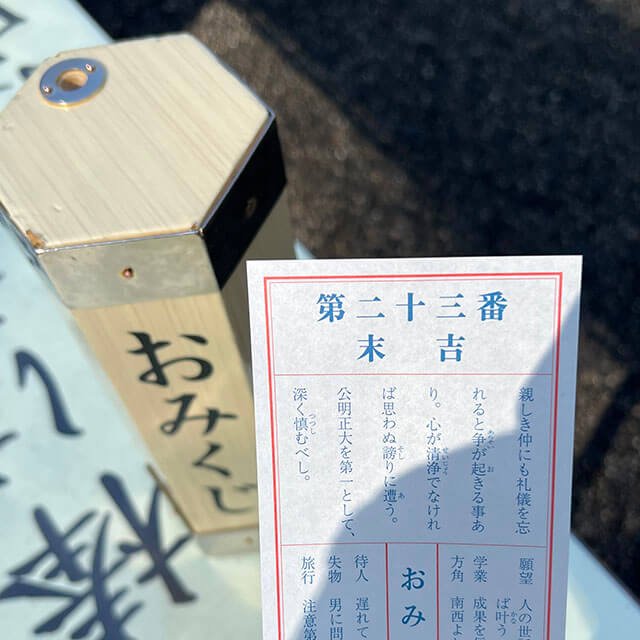 おみくじ
第二十三番
末吉
親しき仲にも礼儀を忘
れると争が起きる事あ
り。心が清浄でなけれ
ば思わぬ謗りに遭う。
公明正大を第一として、
深く慎むべし。
願望 人の世
ば叶う
学業 成果を
方角 南西よ
おみ
待人 遅れて
失物 男に問
旅行 注意第